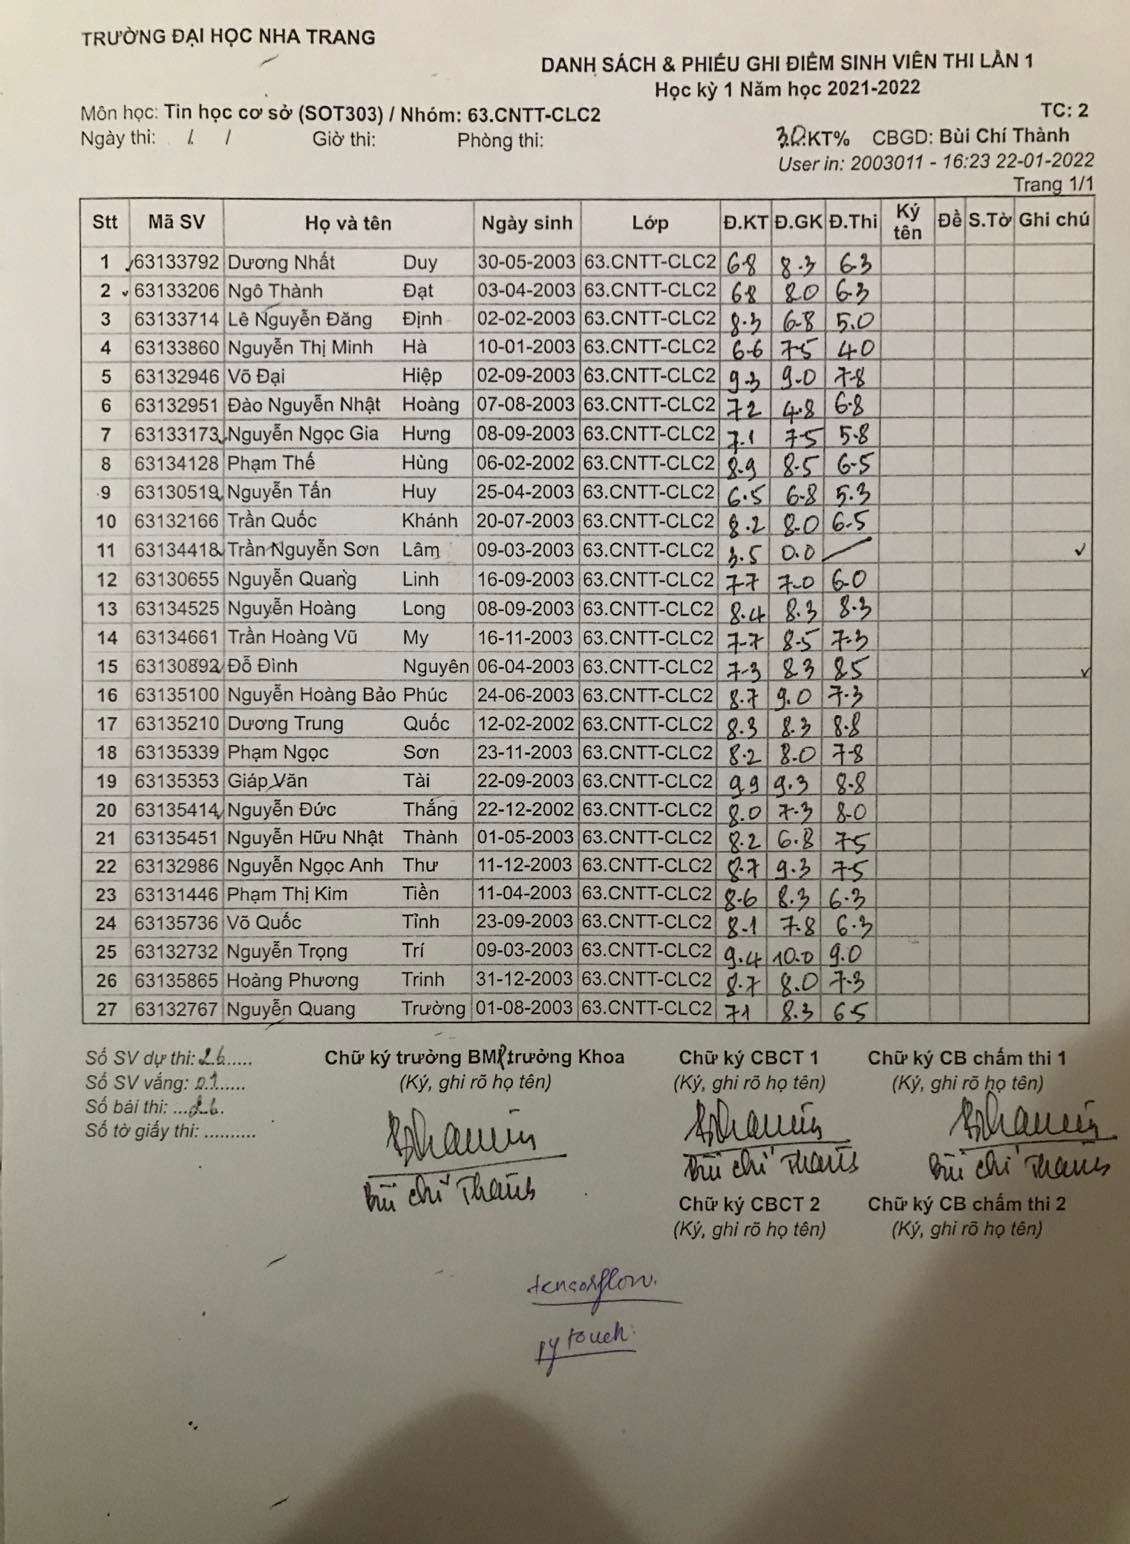 TRƯỜNG ĐẠI HỌC NHA TRANG
DANH SÁCH & PHIẾU GHI ĐIỂM SINH VIÊN THI LẦN 1
Học kỳ 1 Năm học 2021-2022
Môn học: Tin học cơ sở (SOT303) / Nhóm: 63.CNTT-CLC2 TC: 2
Ngày thi: / / Giờ thi: Phòng thi: 30.KT% CBGD: Bùi Chí Thành
User in: 2003011 - 16:23 22-01-2022
Trang 1/1
Stt Mã SV Họ và tên Ngày sinh Lớp Đ.KT Đ.GK Đ.Thi Ký tên Đề S.Tờ Ghi chú
1 63133792 Dương Nhất Duy 30-05-2003 63.CNTT-CLC2 6.8 8.3 6.3
2 63133206 Ngô Thành Đạt 03-04-2003 63.CNTT-CLC2 6.8 8.0 6.3
3 63133714 Lê Nguyễn Đăng Định 02-02-2003 63.CNTT-CLC2 8.3 6.8 5.0
4 63133860 Nguyễn Thị Minh Hà 10-01-2003 63.CNTT-CLC2 6.6 7.5 4.0
5 63132946 Võ Đại Hiệp 02-09-2003 63.CNTT-CLC2 9.3 9.0 7.8
6 63132951 Đào Nguyễn Nhật Hoàng 07-08-2003 63.CNTT-CLC2 7.2 4.8 6.8
7 63133173 Nguyễn Ngọc Gia Hưng 08-09-2003 63.CNTT-CLC2 7.1 7.5 5.8
8 63134128 Phạm Thế Hùng 06-02-2002 63.CNTT-CLC2 8.9 8.5 6.5
9 63130519 Nguyễn Tấn Huy 25-04-2003 63.CNTT-CLC2 6.5 6.8 5.3
10 63132166 Trần Quốc Khánh 20-07-2003 63.CNTT-CLC2 8.2 8.0 6.5
11 63134418 Trần Nguyễn Sơn Lâm 09-03-2003 63.CNTT-CLC2 3.5 0.0 ✓
12 63130655 Nguyễn Quang Linh 16-09-2003 63.CNTT-CLC2 7.7 7.0 6.0
13 63134525 Nguyễn Hoàng Long 08-09-2003 63.CNTT-CLC2 8.4 8.3 8.3
14 63134661 Trần Hoàng Vũ My 16-11-2003 63.CNTT-CLC2 7.7 8.5 7.3
15 63130892 Đỗ Đình Nguyên 06-04-2003 63.CNTT-CLC2 7.3 8.3 8.5 ✓
16 63135100 Nguyễn Hoàng Bảo Phúc 24-06-2003 63.CNTT-CLC2 8.7 9.0 7.3
17 63135210 Dương Trung Quốc 12-02-2002 63.CNTT-CLC2 8.3 8.3 8.8
18 63135339 Phạm Ngọc Sơn 23-11-2003 63.CNTT-CLC2 8.2 8.0 7.8
19 63135353 Giáp Văn Tài 22-09-2003 63.CNTT-CLC2 9.9 9.3 8.8
20 63135414 Nguyễn Đức Thắng 22-12-2002 63.CNTT-CLC2 8.0 7.3 8.0
21 63135451 Nguyễn Hữu Nhật Thành 01-05-2003 63.CNTT-CLC2 8.2 6.8 7.5
22 63132986 Nguyễn Ngọc Anh Thư 11-12-2003 63.CNTT-CLC2 8.7 9.3 7.5
23 63131446 Phạm Thị Kim Tiền 11-04-2003 63.CNTT-CLC2 8.6 8.3 6.3
24 63135736 Võ Quốc Tỉnh 23-09-2003 63.CNTT-CLC2 8.1 7.8 6.3
25 63132732 Nguyễn Trọng Trí 09-03-2003 63.CNTT-CLC2 9.4 10.0 9.0
26 63135865 Hoàng Phương Trinh 31-12-2003 63.CNTT-CLC2 8.7 8.0 7.3
27 63132767 Nguyễn Quang Trường 01-08-2003 63.CNTT-CLC2 7.1 8.3 6.5
Số SV dự thi: 26..... Chữ ký trưởng BM/trưởng Khoa Chữ ký CBCT 1 Chữ ký CB chấm thi 1
Số SV vắng: 01..... (Ký, ghi rõ họ tên) (Ký, ghi rõ họ tên) (Ký, ghi rõ họ tên)
Số bài thi: ...26.
Số tờ giấy thi: ..........
Bùi Chí Thành Bùi Chí Thành Bùi Chí Thành
Chữ ký CBCT 2 Chữ ký CB chấm thi 2
(Ký, ghi rõ họ tên) (Ký, ghi rõ họ tên)
tensorflow.
pytouch.